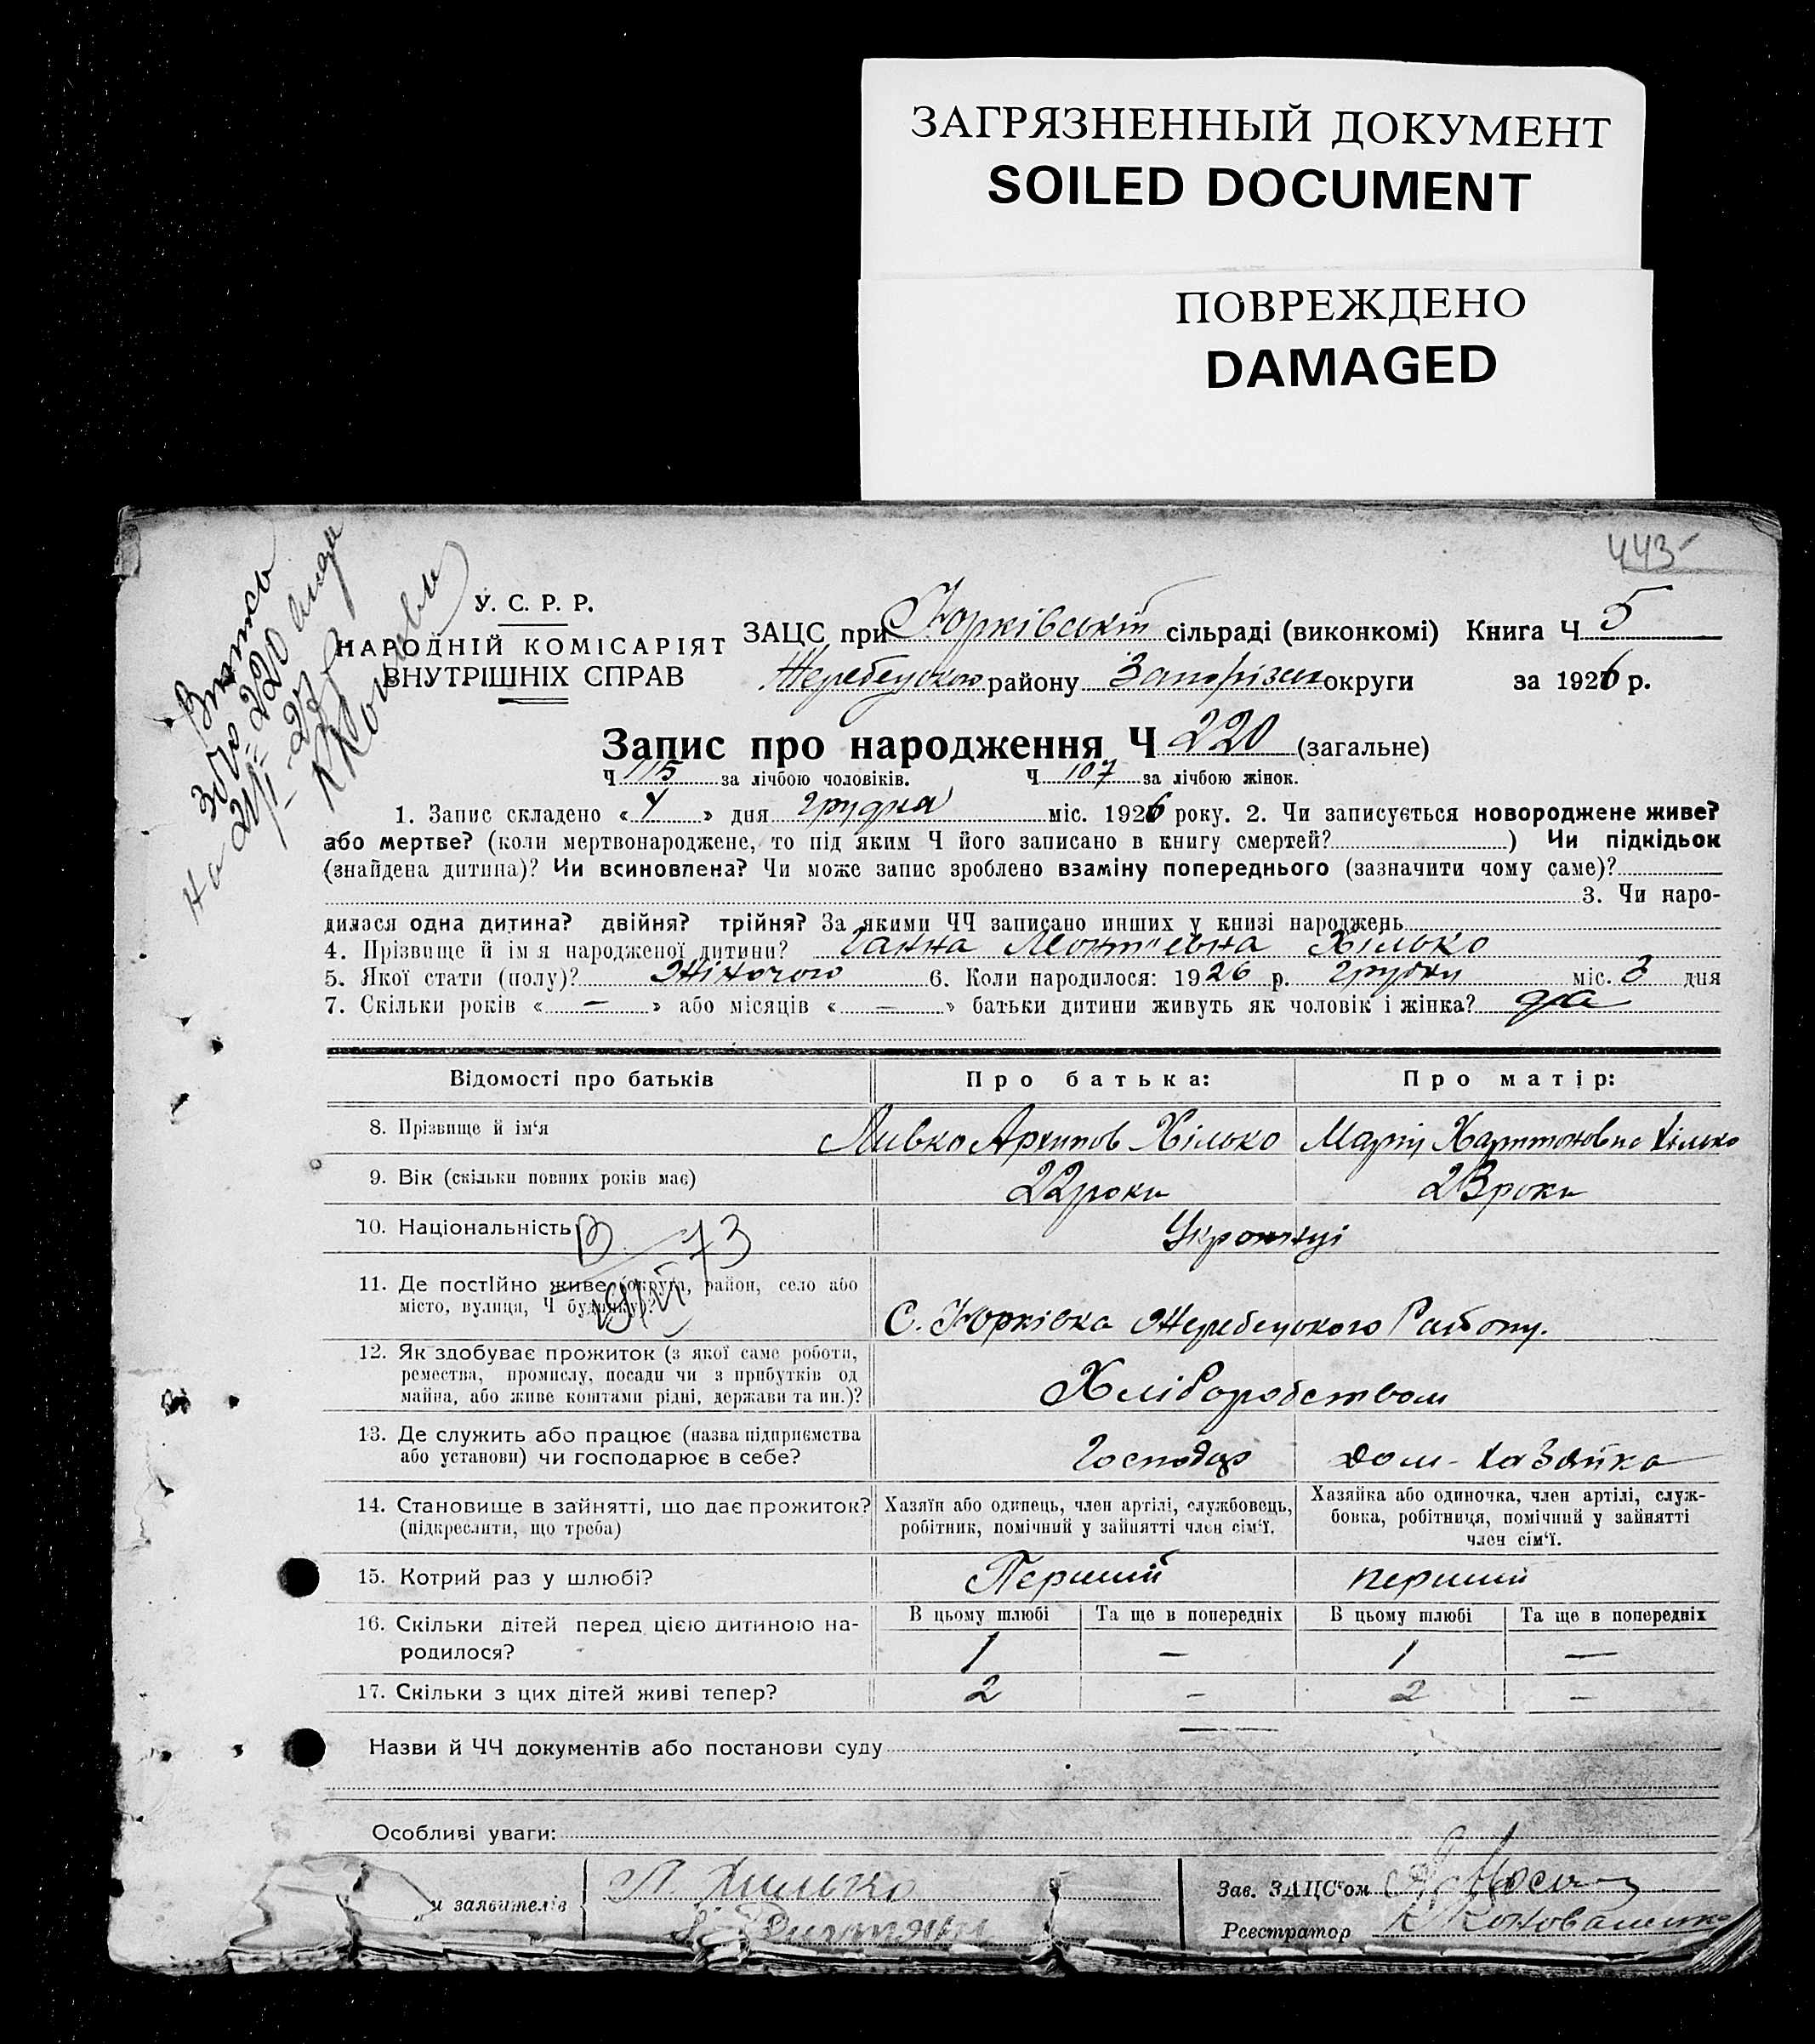 ЗАГРЯЗНЕННЫЙ ДОКУМЕНТ
SOILED DOCUMENT
ПОВРЕЖДЕНО
DAMAGED
443
У. С. Р. Р.
НАРОДНІЙ КОМІСАРІЯТ
ВНУТРІШНІХ СПРАВ
ЗАЦС при Юрківській сільраді (виконкомі) Книга Ч 5
Жеребецького району Запорізьк округи за 1926 р.
Запис про народження Ч 220 (загальне)
Ч 115 за лічбою чоловіків. Ч 107 за лічбою жінок.
1. Запис складено « 4 » дня грудня міс. 1926 року. 2. Чи записується новороджене живе?
або мертве? (коли мертвонароджене, то під яким Ч його записано в книгу смертей? ) Чи підкідьок
(знайдена дитина)? Чи всиновлена? Чи може запис зроблено взаміну попереднього (зазначити чому саме)?
3. Чи наро-
дилася одна дитина? двійня? трійня? За якими ЧЧ записано инших у книзі народжень
4. Прізвище й ім'я народженої дитини? Ганна Леонтієвна Хілько
5. Якої стати (полу)? Жіночого 6. Коли народилося: 1926 р. грудня міс. 3 дня
7. Скільки років « — » або місяців « — » батьки дитини живуть як чоловік і жінка? да
Відомості про батьків Про батька: Про матір:
8. Прізвище й ім'я Ливко Архипов Хілько Марія Харитоновна Хілько
9. Вік (скільки повних років має) 22 роки 23 роки
10. Національність Українці
В 73
11. Де постійно живе (округа, район, село або
місто, вулиця, Ч будинку)? С. Юрківка Жеребецького Району.
12. Як здобуває прожиток (з якої саме роботи,
ремества, промислу, посади чи з прибутків од
майна, або живе коштами рідні, держави та ин.)? Хліборобством
13. Де служить або працює (назва підприємства
або установи) чи господарює в себе? Господар дом-хазяйка
14. Становище в зайнятті, що дає прожиток?
(підкреслити, що треба)
Хазяїн або одинець, член артілі, службовець,
робітник, помічний у зайнятті член сім'ї.
Хазяйка або одиночка, член артілі, служ-
бовка, робітниця, помічний у зайнятті
член сім'ї.
15. Котрий раз у шлюбі? Перший перший
В цьому шлюбі Та ще в попередніх В цьому шлюбі Та ще в попередніх
16. Скільки дітей перед цією дитиною на-
родилося? 1 — 1 —
17. Скільки з цих дітей живі тепер? 2 – 2 –
Назви й ЧЧ документів або постанови суду
Особливі уваги:
и заявителів Л. Хилько
Зав. ЗАЦС'ом
Реєстратор К Коноваленко